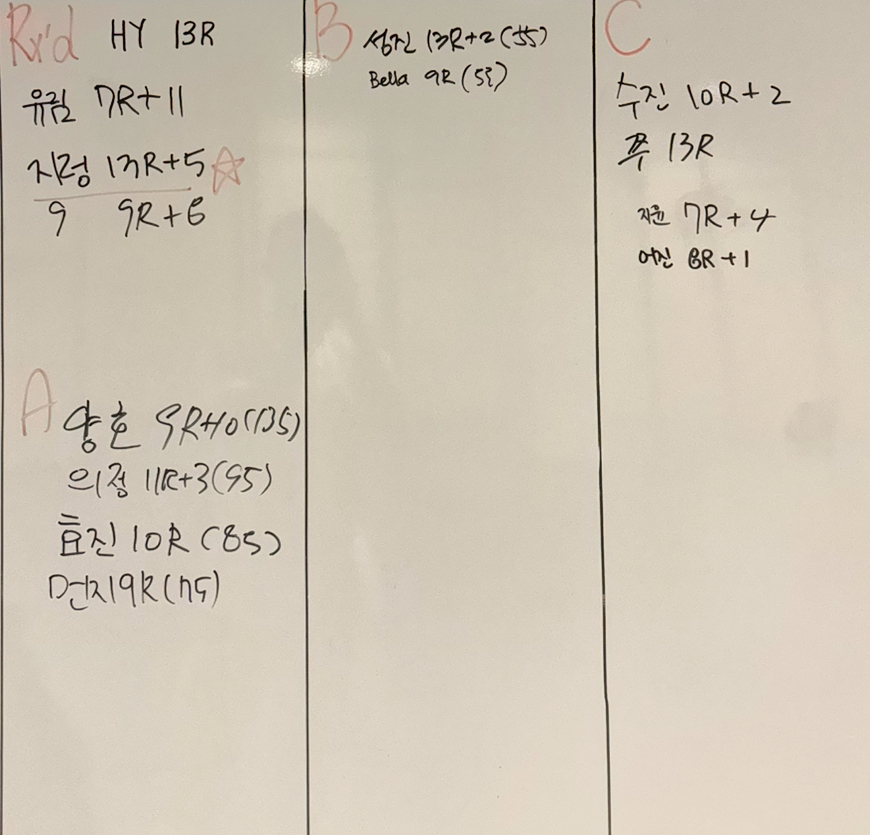 Rx'd HY 13R
유림 7R+11
지정 13R+5☆
9 9R+6
A
양호 9R+10(135)
의정 11R+3(95)
효진 10R (85)
먼지 9R(75)
B
성진 13R+2 (55)
Bella 9R (53)
C
수진 10R+2
쭈 13R
지윤 7R+4
어진 8R+1